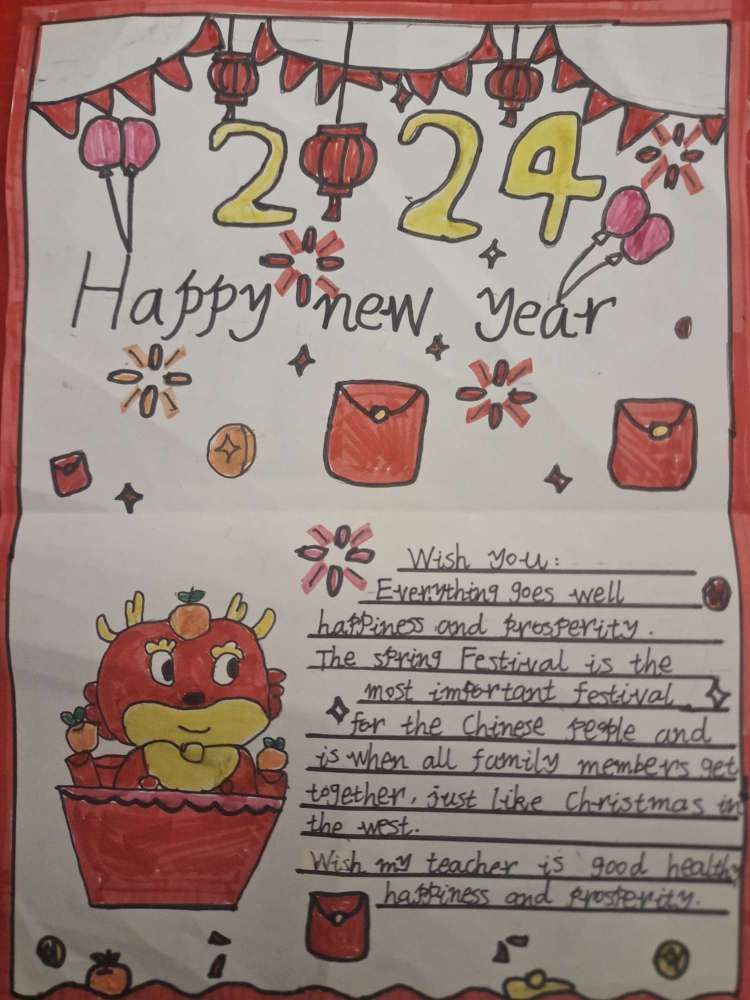 2 24
Happy new year
Wish you:
Everything goes well
happiness and prosperity.
The spring Festival is the
most important festival
for the Chinese people and
is when all family members get
together, just like Christmas in
the west.
Wish my teacher is good healthy
happiness and prosperity.